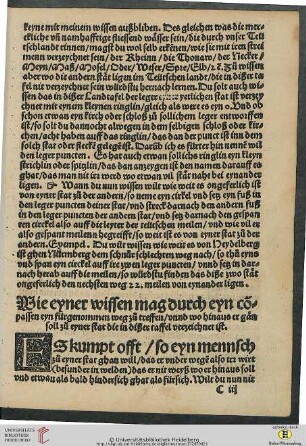 keyne mit meinem wissen außbliben. Des gleichen was die mer-
ckliche vnd namhafftige fliessend wässer sein / die durch vnser Teut
tschlandt rinnen / magst du wol selb erkënen / wie sie mit iren strei
menn verzeychnet sein / der Rheinn / die Thonaw / der Necker /
Mayn / Maß / Mosel / Oder / Weser / Elb / zů wissen
aber wo die andern stät ligen im Teütschen landt / die in dißer ta
fel nit verzeychnet sein würdstu hernach lernen. Du solt auch wi
ssen das in dißer Landtafel der leger yetlichen stat ist verzey
chnet mit eynem kleynen ringlin / gleich als were es eyn o. Vnd ob
schon etwan eyn kirch oder schloß zů sollichem leger entworffen
ist / so solt du dannocht alwegen in dem selbigen schloß oder kir
chen / acht haben auff das ringlin / das dan der punct ist inn dem
solch stat oder fleckẽ gelegẽ ist. Darũb ich es fürter hin nennẽ will
den leger puncten. Es hat auch etwan solichs ringlin eyn kleyn
strichlin oder spitzlin / das dan anzeygen ist den namen darauff es
ghat / das man nit irr werd wo etwan vil stät nahe bey eynander
ligen. Wann du nun wissen wilt wie weit es ongeferlich ist
von eyner stat zů der andern / so nem eyn cirkel vnd setz eyn fuß in
den leger puncten deiner stat / vnd streck darnach den andern fuß
in den leger puncten der andern stat / vnd setz darnach den gespan
ten circkel also auff die leyter der teütschen meilen / vnd wie vil er
also gespant meilenn begreifft / so weit ist es von eyner stat zů der
andern. Exempel. Du wilt wissen wie weit es von Heydelberg
ist ghen Nürmberg dem schnůr schlechten weg nach / so thů eyns
vnd span eyn circkel auff ire zween leger puncten / vnnd setz jn dar
nach herab auff die meilen / so würdstu finden das diße zwo stät
ongeferlich den nechsten weg 22. meilen von eynander ligen.
Wie eyner wissen mag durch eyn cõ-
passen eyn fürgenommen weg zů treffen / vnnd wo hinaus er gan
soll zů eyner stat die in dißer taffel verzeichnet ist.
ES kumpt offt / so eyn mennsch
zů eyner stat ghan will / das er vnder wege also irr wirt
(besunder in welden) das er nit weyß wo er hinaus soll
vnd etwan als bald hindersich ghat als fürsich. Wilt du nun nit
C iij
© Universitätsbibliothek Heidelberg